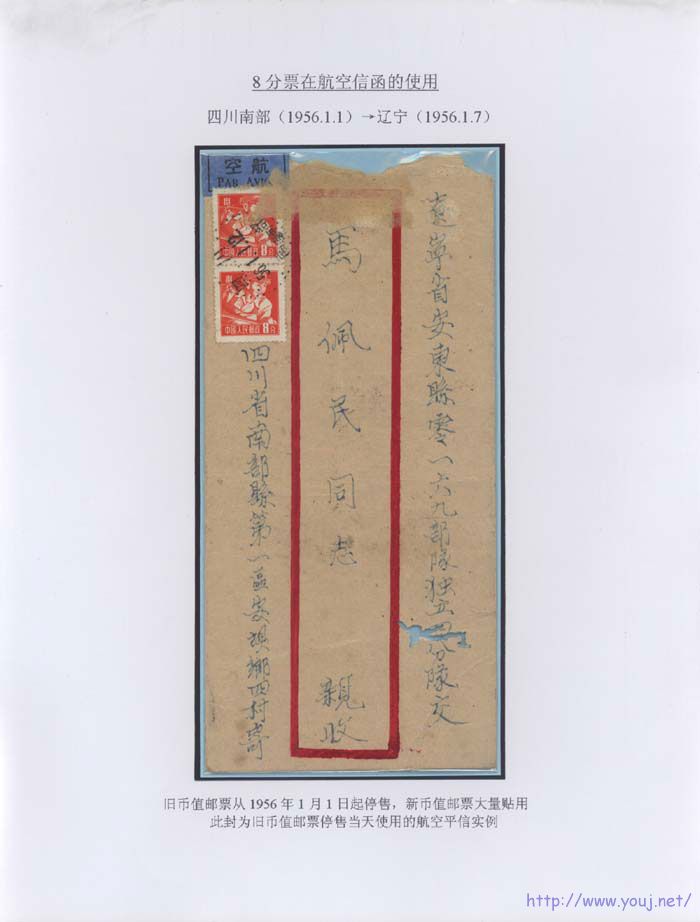 8分票在航空信函的使用
四川南部（1956.1.1）→辽宁（1956.1.7）
空航
PAR AVION
8分
中国人民邮政 8分
遼寧省安東縣零一六九部隊独立四分隊交
馬佩民同志 親收
四川省南部縣第一區安壩鄉四村寄
旧币值邮票从1956年1月1日起停售，新币值邮票大量贴用
此封为旧币值邮票停售当天使用的航空平信实例
http://www.youj.net/